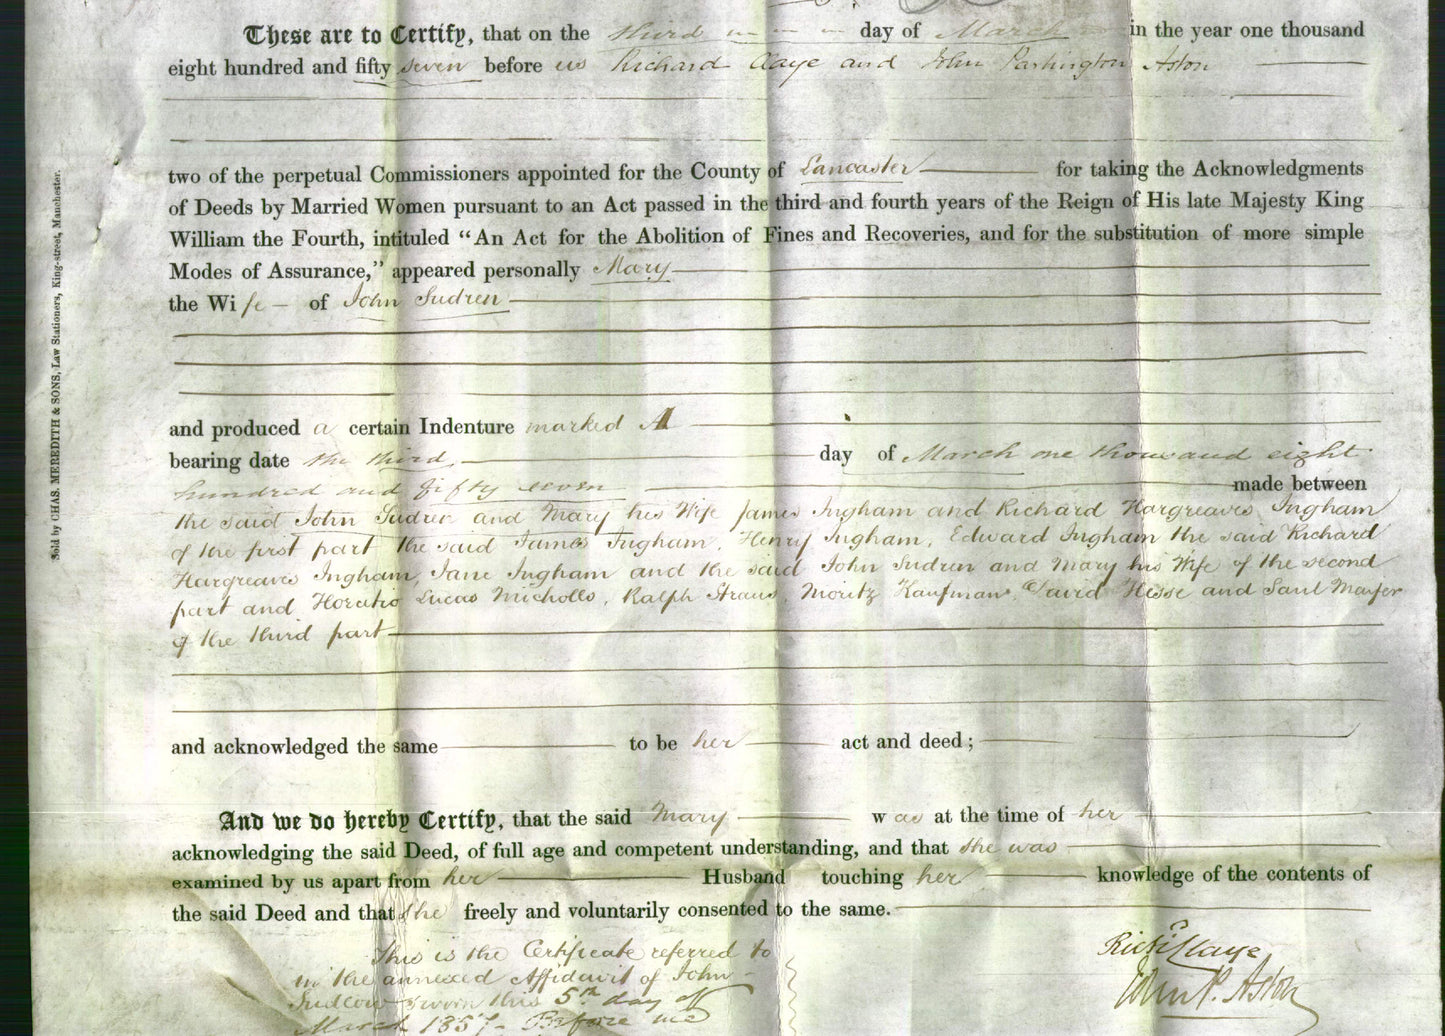 These are to Certify, that on the third day of March in the year one thousand
eight hundred and fifty seven before us Richard Claye and John Partington Aston
two of the perpetual Commissioners appointed for the County of Lancaster for taking the Acknowledgments
of Deeds by Married Women pursuant to an Act passed in the third and fourth years of the Reign of His late Majesty King
William the Fourth, intituled “An Act for the Abolition of Fines and Recoveries, and for the substitution of more simple
Modes of Assurance,” appeared personally Mary
the Wife of John Sudren
and produced a certain Indenture marked A
bearing date the third day of March one thousand eight
hundred and fifty seven made between
the said John Sudren and Mary his Wife James Ingham and Richard Hargreaves Ingham
of the first part the said James Ingham, Henry Ingham, Edward Ingham the said Richard
Hargreaves Ingham, Jane Ingham and the said John Sudren and Mary his Wife of the second
part and Horatio Lucas Micholls, Ralph Straus, Moritz Kaufman, David Hesse and Saul Mayer
of the third part
and acknowledged the same to be her act and deed;
And we do hereby Certify, that the said Mary was at the time of her
acknowledging the said Deed, of full age and competent understanding, and that she was
examined by us apart from her Husband touching her knowledge of the contents of
the said Deed and that she freely and voluntarily consented to the same.
This is the Certificate referred to
in the annexed Affidavit of John
Sudlow sworn this 5th day of
March 1857 - Before me
Richd Claye
John P. Aston
Sold by CHAS. MEREDITH & SONS, Law Stationers, King-street, Manchester.